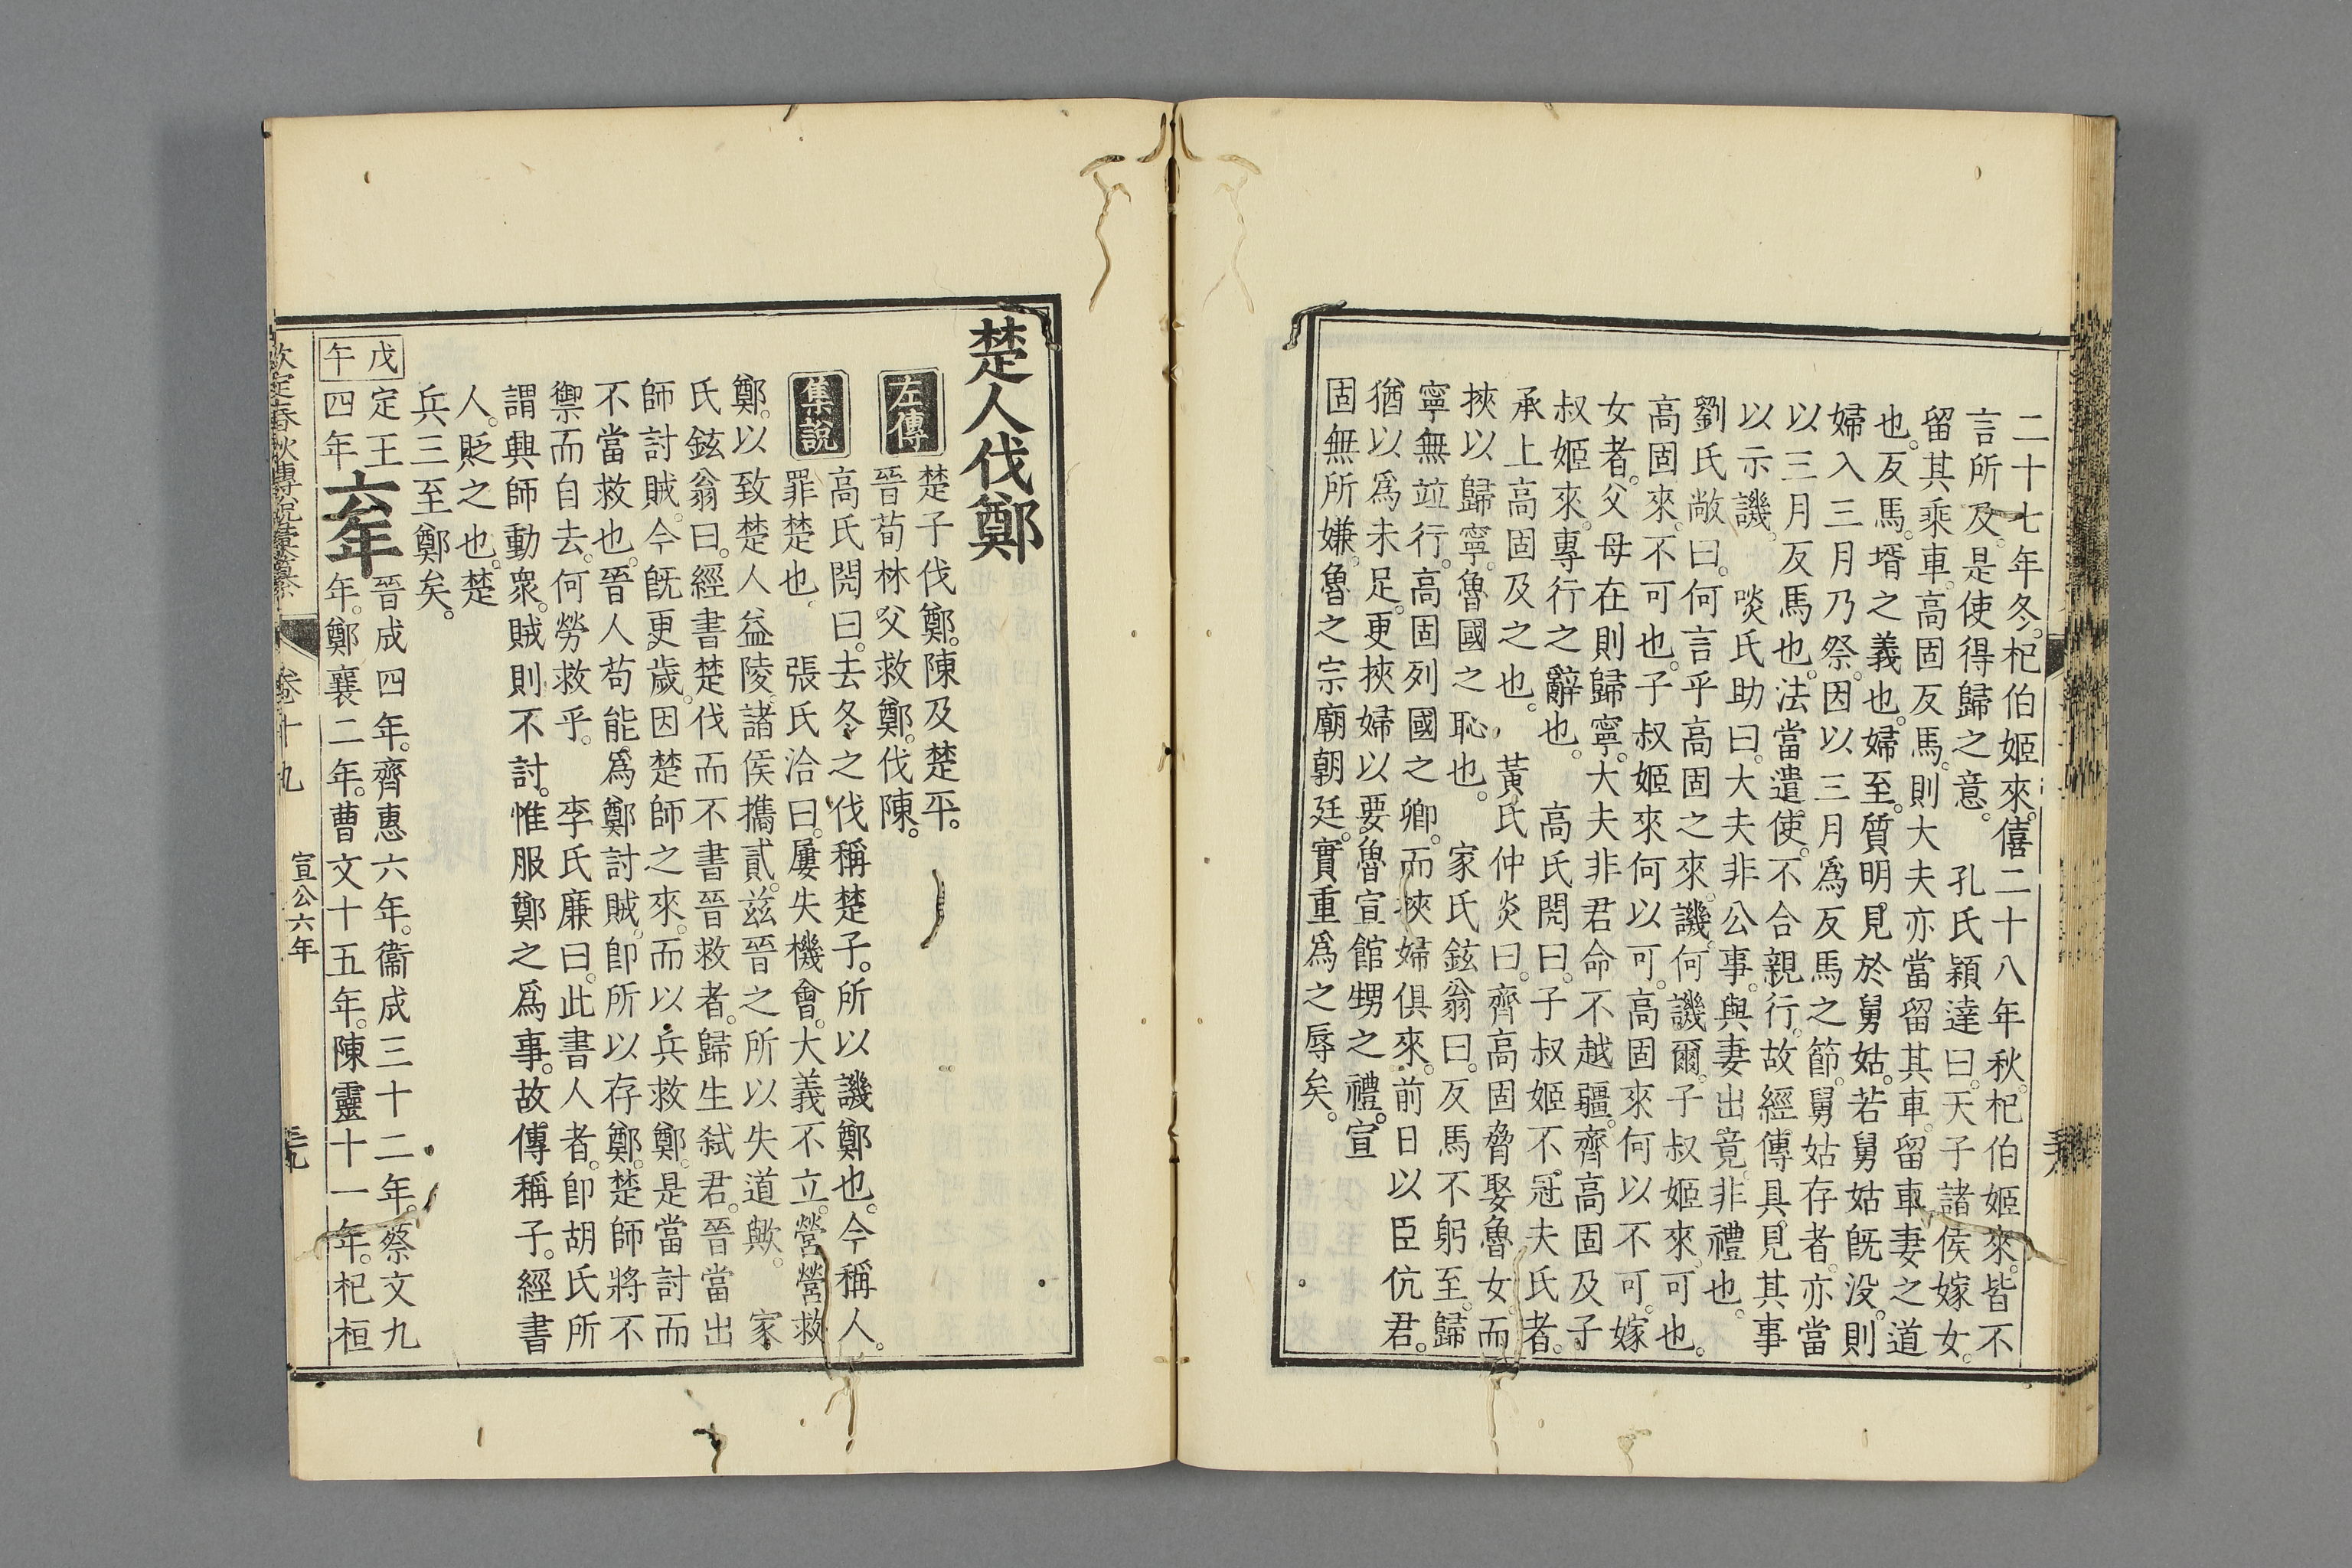 二十七年冬。杞伯姬來。僖二十八年秋。杞伯姬來。皆不
言所及。是使得歸之意。　孔氏穎達曰。天子諸侯嫁女。
留其乘車。高固反馬。則大夫亦當留其車。留車妻之道
也。反馬。壻之義也。婦至。質明見於舅姑。若舅姑旣没。則
婦入三月乃祭。因以三月爲反馬之節。舅姑存者。亦當
以三月反馬也。法當遣使。不合親行。故經傳具見其事
以示譏。　啖氏助曰。大夫非公事。與妻出竟。非禮也。
劉氏敞曰。何言乎高固之來。譏。何譏爾。子叔姬來。可也。
高固來。不可也。子叔姬來何以可。高固來何以不可。嫁
女者。父母在則歸寧。大夫非君命不越疆。齊高固及子
叔姬來。專行之辭也。　高氏閌曰。子叔姬不冠夫氏者。
承上高固及之也。　黃氏仲炎曰。齊高固脅娶魯女。而
挾以歸寧。魯國之恥也。　家氏鉉翁曰。反馬不躬至。歸
寧無竝行。高固列國之卿。而挾婦俱來。前日以臣伉君。
猶以爲未足。更挾婦以要魯宣館甥之禮。宣
固無所嫌。魯之宗廟朝廷。實重爲之辱矣。
楚人伐鄭
左傳　楚子伐鄭。陳及楚平。
晉荀林父救鄭。伐陳。
集說　高氏閌曰。去冬之伐稱楚子。所以譏鄭也。今稱人。
罪楚也。　張氏洽曰。屢失機會。大義不立。營營救
鄭。以致楚人益陵。諸侯攜貳。兹晉之所以失道歟。　家
氏鉉翁曰。經書楚伐而不書晉救者。歸生弑君。晉當出
師討賊。今旣更歲。因楚師之來。而以兵救鄭。是當討而
不當救也。晉人苟能爲鄭討賊。卽所以存鄭。楚師將不
禦而自去。何勞救乎。　李氏廉曰。此書人者。卽胡氏所
謂興師動衆。賊則不討。惟服鄭之爲事。故傳稱子。經書
人。貶之也。楚
兵三至鄭矣。
戊午　定王四年　六年　晉成四年。齊惠六年。衞成三十二年。蔡文九
年。鄭襄二年。曹文十五年。陳靈十一年。杞桓
欽定春秋傳說彙纂　卷十九　宣公六年